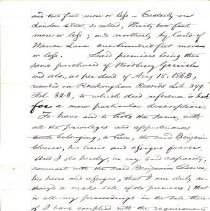 and two feet more or less - Easterly on
Linden Street so called, Thirty two feet
more or less; and northerly by land of
Warren Lunn one hundred feet more
or less. Said premises being the
same purchased of Westbury Gerrish
and wife, as per deed of Aug 15. 1863,
recorded in Rockingham Records Lib. 399
Fol. 263, to which deed reference is had
for a more particular description.
To have and to hold the same, with
all the privileges and appurtenances
thereto belonging, to him, the said Benjamin
his heirs and assigns forever.
And I do hereby, in my said capacity,
covenant with the said Benjamin
his heirs and assigns, that I am duly au-
thorized to make sale of the premises; that
in all my proceedings in the sale there
of I have complied with the requirements